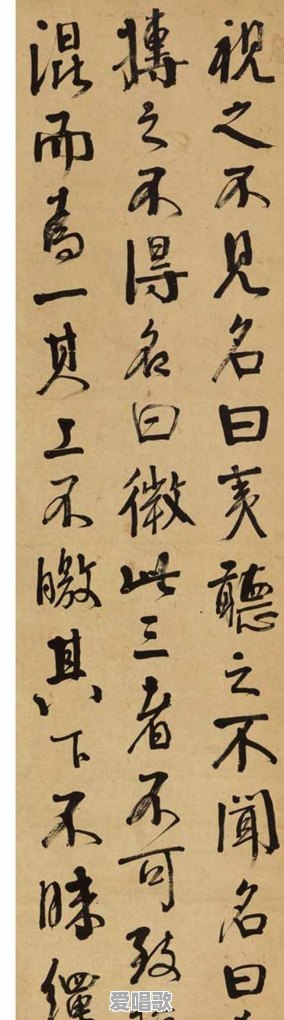 視之不見名曰夷聽之不聞名曰
摶之不得名曰微此三者不可致
混而為一其上不皦其下不昧繩
爱唱歌